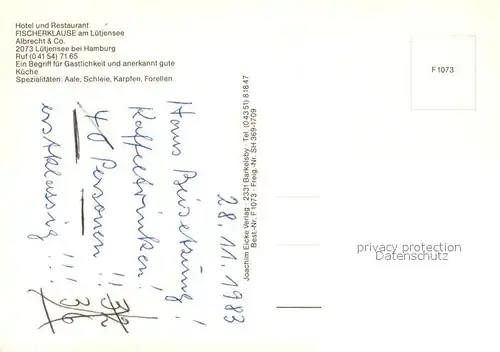 Hotel und Restaurant
FISCHERKLAUSE am Lütjensee
Albrecht & Co.
2073 Lütjensee bei Hamburg
Ruf (0 41 54) 71 65
Ein Begriff für Gastlichkeit und anerkannt gute
Küche
Spezialitäten: Aale, Schleie, Karpfen, Forellen
F 1073
28.11.1983
Hans Beisetzung!
Kaffeetrinken!
40 Personen!!
erstklassig...!!!
32
36
Joachim Eicke Verlag · 2331 Barkelsby · Tel. (0 43 51) 8 18 47
Best.-Nr. F 1073 · Freig.-Nr. SH 369-1709
privacy protection
watermark